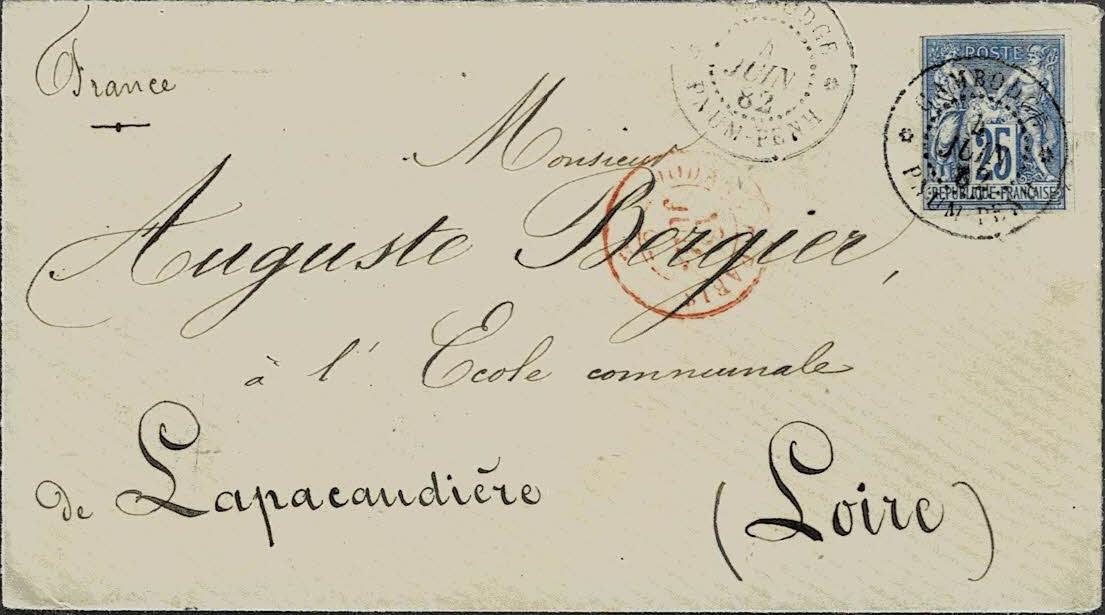 CAMBODGE
4
JUIN
82
PNUM-PENH
POSTE
25
REPUBLIQUE FRANÇAISE
CAMBODGE
4
JUIN
82
PNUM-PENH
France
Monsieur
PARIS
Auguste Bergier,
à l' Ecole communale
de Lapacaudière (Loire)